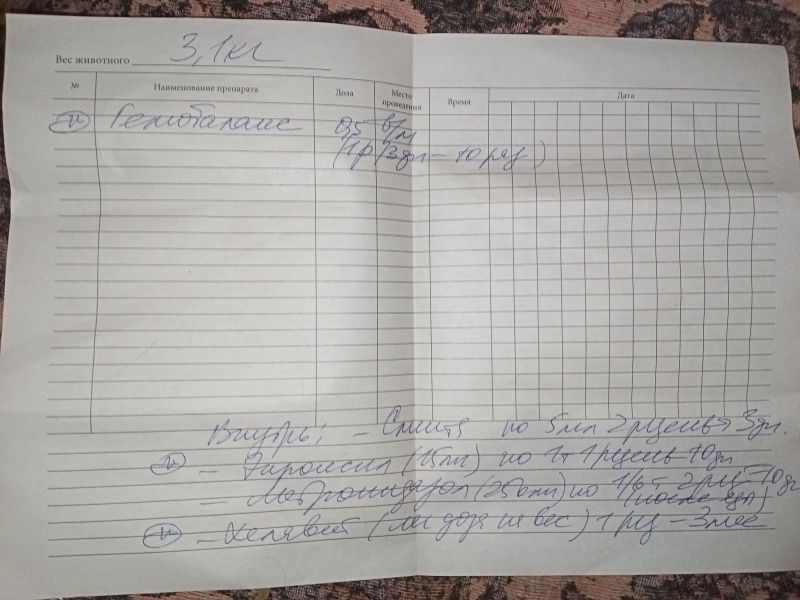 Вес животного 3,1 кг
№ Наименование препарата Доза Место проведения Время Дата
Гемобаланс 0,5 в/м
(1 р/3 дн – 10 раз)
Внутрь: – по 5мл 2 р/день 3 дн.
– (15мг) по 1т 1 р/день 10 дн
– Метронидазол (250мг) по 1/6 т 2 р/д – 10 дн
(после еды)
– Хелавит (на вес) 1 р/д – 3 мес